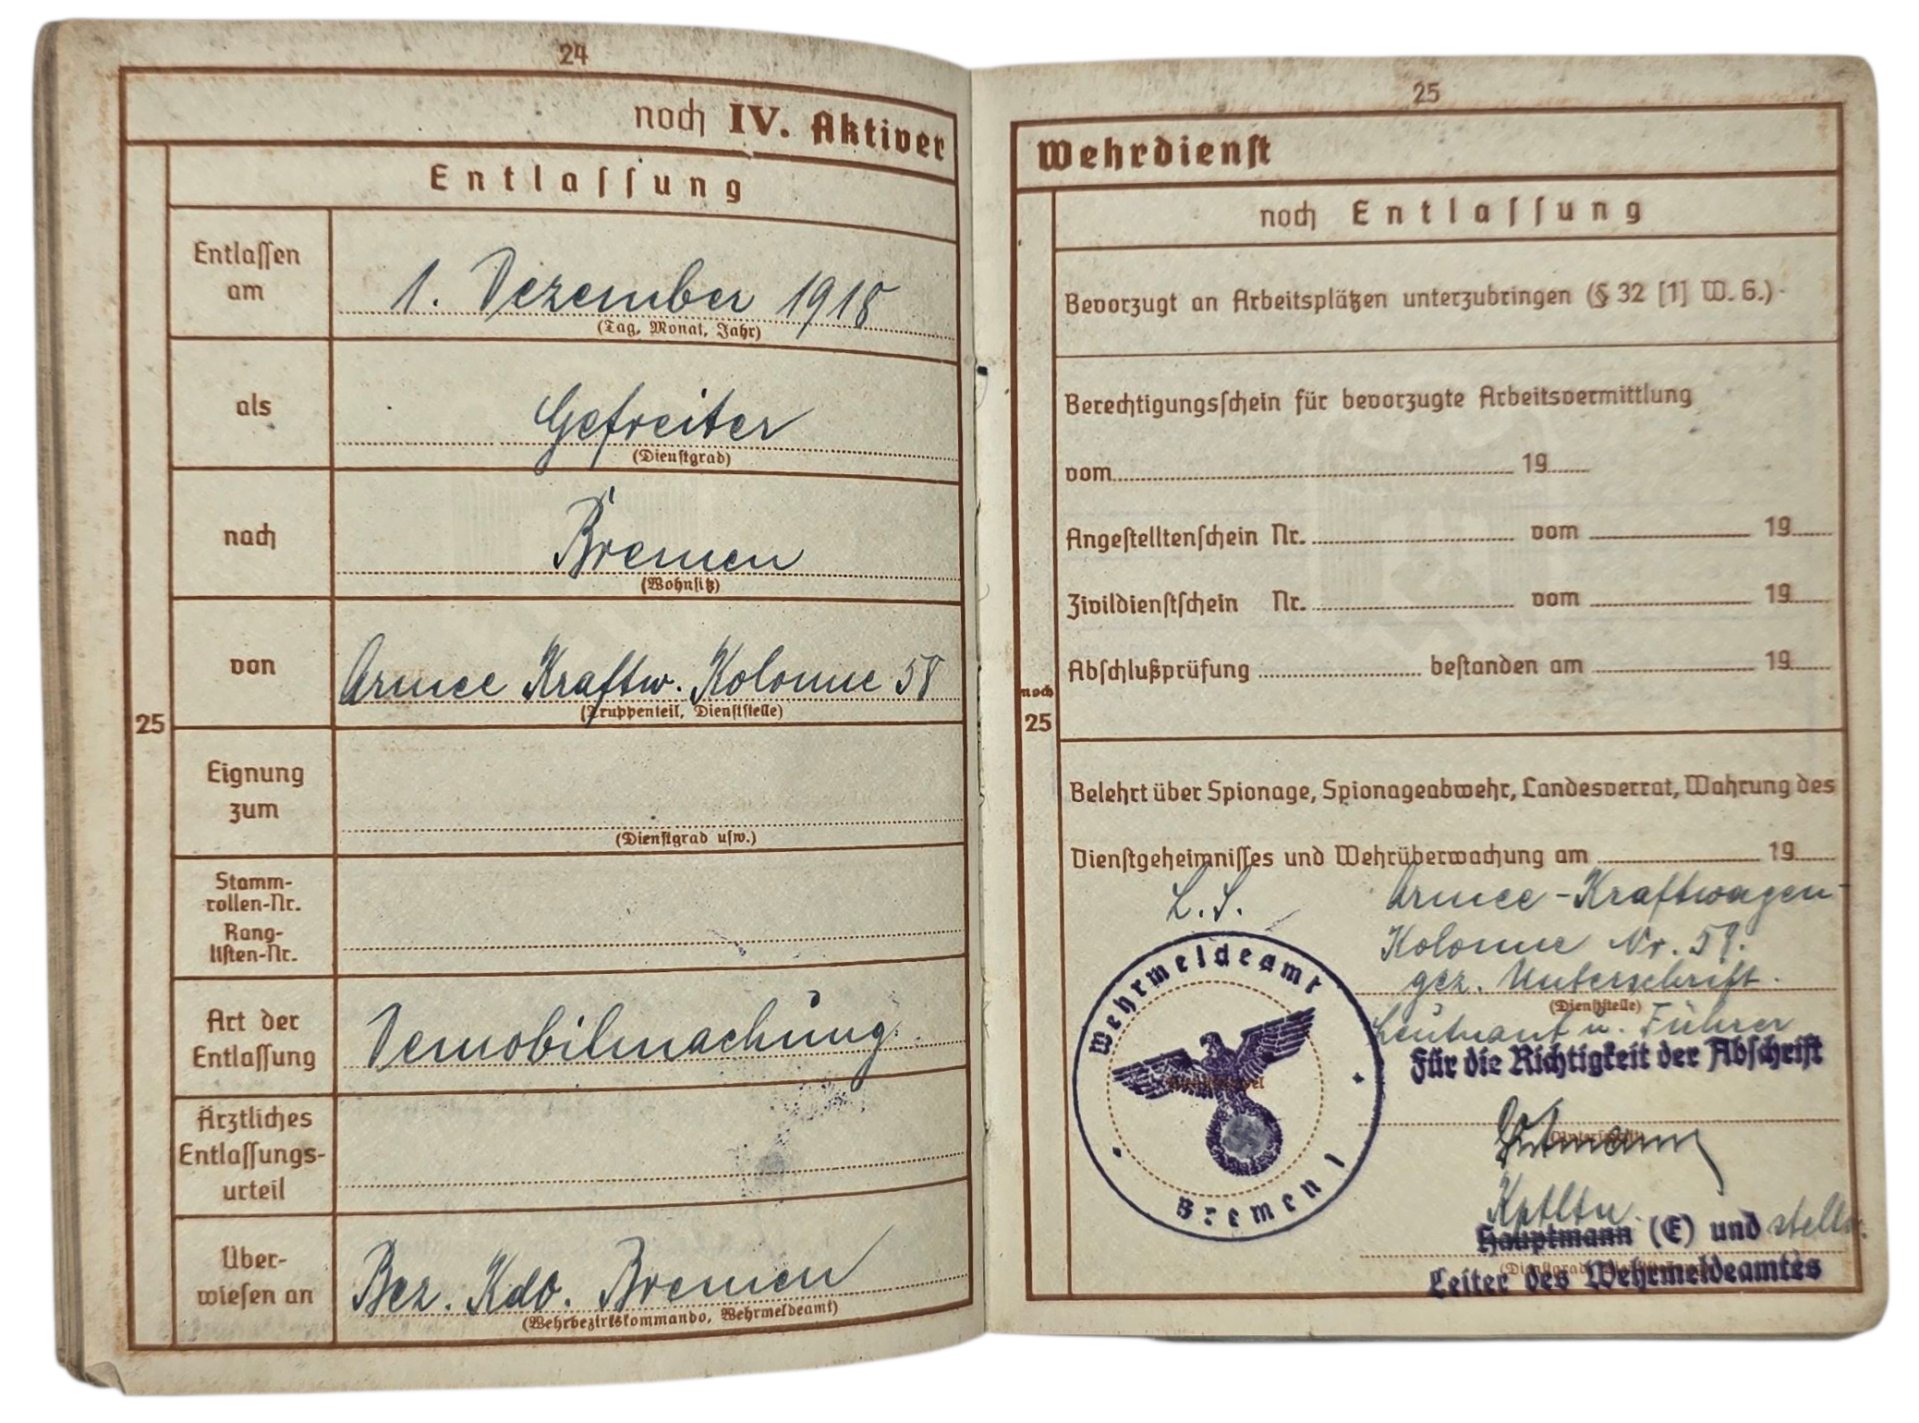 24
noch IV. Aktiver
Entlassung
Entlassen
am
1. Dezember 1918
(Tag, Monat, Jahr)
als
Gefreiter
(Dienstgrad)
nach
Bremen
(Wohnsitz)
von
Armee Kraftw. Kolonne 58
(Truppenteil, Dienststelle)
25
Eignung
zum
(Dienstgrad usw.)
Stamm-
rollen-Nr.
Rang-
listen-Nr.
Art der
Entlassung
Demobilmachung.
Ärztliches
Entlassungs-
urteil
Über-
wiesen an
Bez. Kdo. Bremen
(Wehrbezirkskommando, Wehrmeldeamt)
25
Wehrdienst
noch Entlassung
Bevorzugt an Arbeitsplätzen unterzubringen (§ 32 [1] W. G.)
Berechtigungsschein für bevorzugte Arbeitsvermittlung
vom 19
Angestelltenschein Nr. vom 19
Zivildienstschein Nr. vom 19
Abschlußprüfung bestanden am 19
noch
25
Belehrt über Spionage, Spionageabwehr, Landesverrat, Wahrung des
Dienstgeheimnisses und Wehrüberwachung am 19
L. S.
Armee-Kraftwagen-
Kolonne Nr. 58.
gez. Unterschrift.
(Dienststelle)
Leutnant u. Führer
Für die Richtigkeit der Abschrift
Wehrmeldeamt
Bremen 1
Kptltn.
Hauptmann (E) und stellv.
Leiter des Wehrmeldeamtes